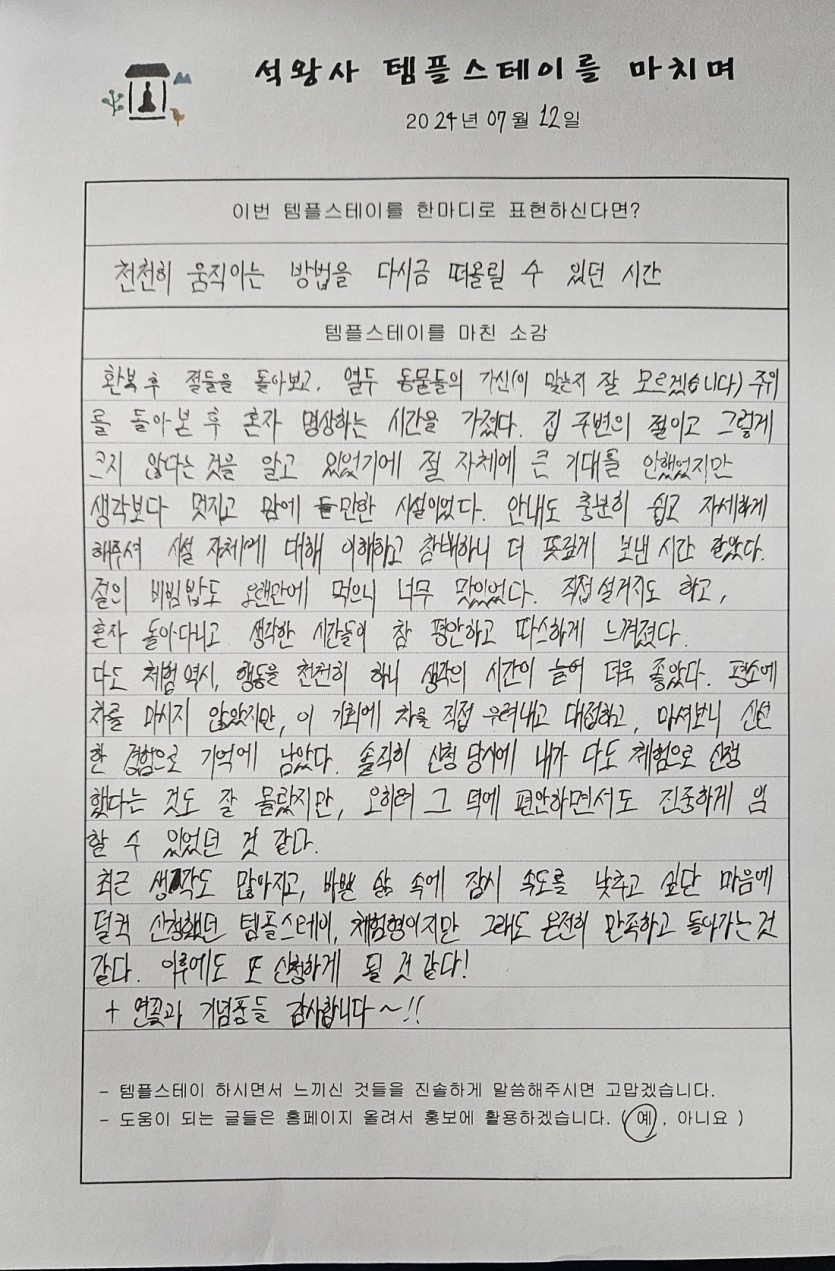 석왕사 템플스테이를 마치며
2024년 07월 12일
이번 템플스테이를 한마디로 표현하신다면?
천천히 움직이는 방법을 다시금 떠올릴 수 있던 시간
템플스테이를 마친 소감
환복 후 절들을 돌아보고, 열두 동물들의 가신(이 맞는지 잘 모르겠습니다) 주위
를 돌아본 후 혼자 명상하는 시간을 가졌다. 집 주변의 절이고 그렇게
크지 않다는 것을 알고 있었기에 절 자체에 큰 기대를 안했었지만
생각보다 멋지고 맘에 들만한 시설이었다. 안내도 충분히 쉽고 자세하게
해주셔 시설 자체에 대해 이해하고 참배하니 더 뜻깊게 보낸 시간 같았다.
절의 비빔밥도 오랜만에 먹으니 너무 맛있었다. 직접 설거지도 하고,
혼자 돌아다니고 생각한 시간들이 참 평안하고 따스하게 느껴졌다.
다도 체험 역시, 행동을 천천히 하니 생각의 시간이 늘어 더욱 좋았다. 평소에
차를 마시지 않았지만, 이 기회에 차를 직접 우려내고 대접하고, 마셔보니 신선
한 경험으로 기억에 남았다. 솔직히 신청 당시에 내가 다도 체험으로 신청
했다는 것도 잘 몰랐지만, 오히려 그 덕에 편안하면서도 진중하게 임
할 수 있었던 것 같다.
최근 생각도 많아지고, 바쁜 삶 속에 잠시 속도를 낮추고 싶단 마음에
덜컥 신청했던 템플스테이, 체험형이지만 그래도 온전히 만족하고 돌아가는 것
같다. 이후에도 또 신청하게 될 것 같다!
+ 연꽃과 기념품들 감사합니다~!!
- 템플스테이 하시면서 느끼신 것들을 진솔하게 말씀해주시면 고맙겠습니다.
- 도움이 되는 글들은 홈페이지 올려서 홍보에 활용하겠습니다. ( 예 , 아니요 )